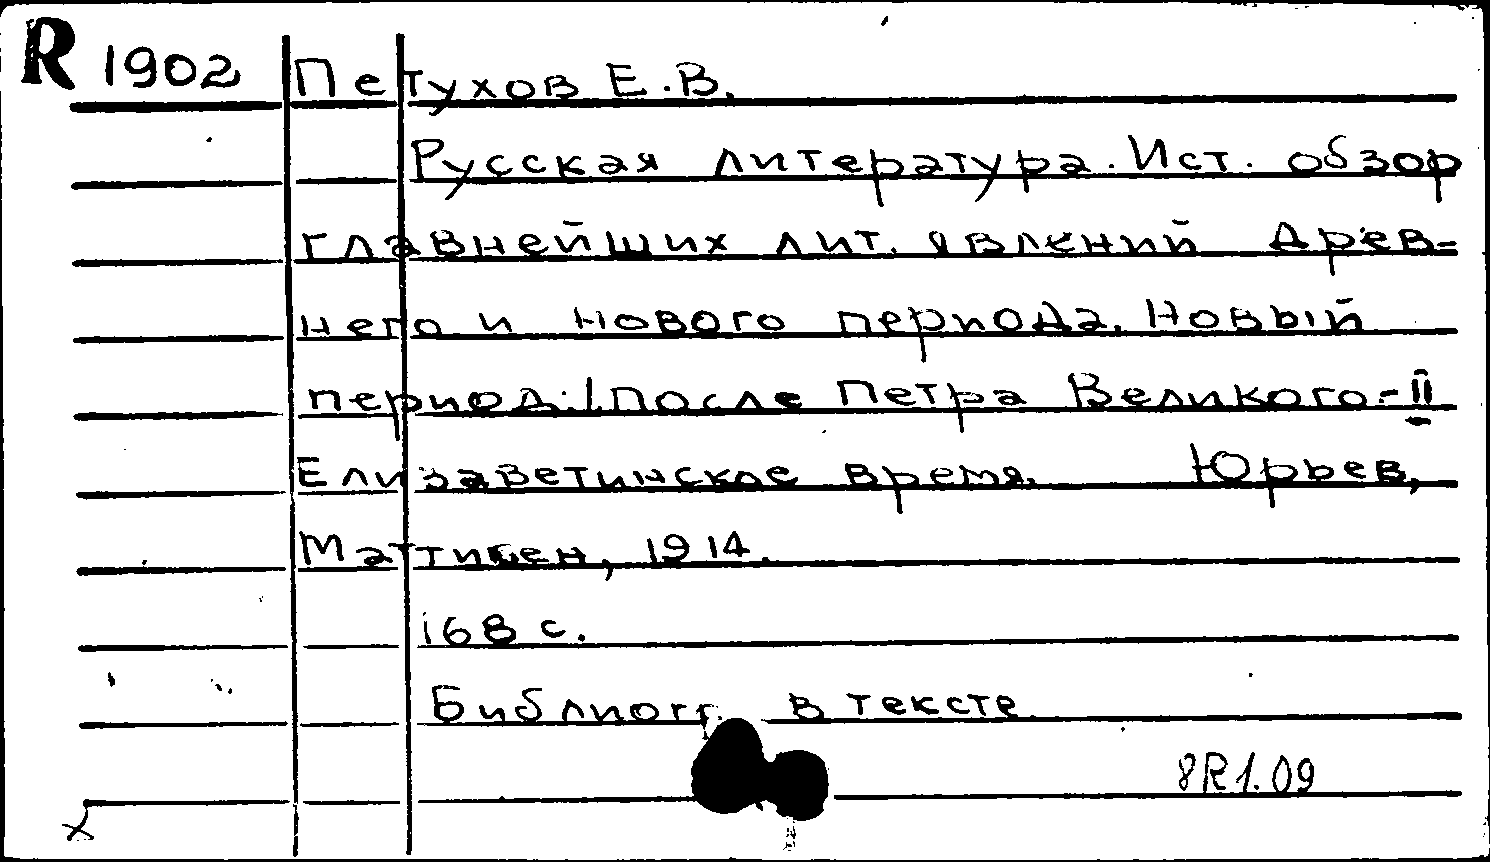 R 1902 Петухов Е.В.
Русская литература. Ист. обзор
главнейших лит. явлений древ-
него и нового периода. Новый
период. I. После Петра Великого.- II
Елизаветинское время. Юрьев,
Маттисен, 1914.
168 с.
Библиогр. в тексте.
8R1.09